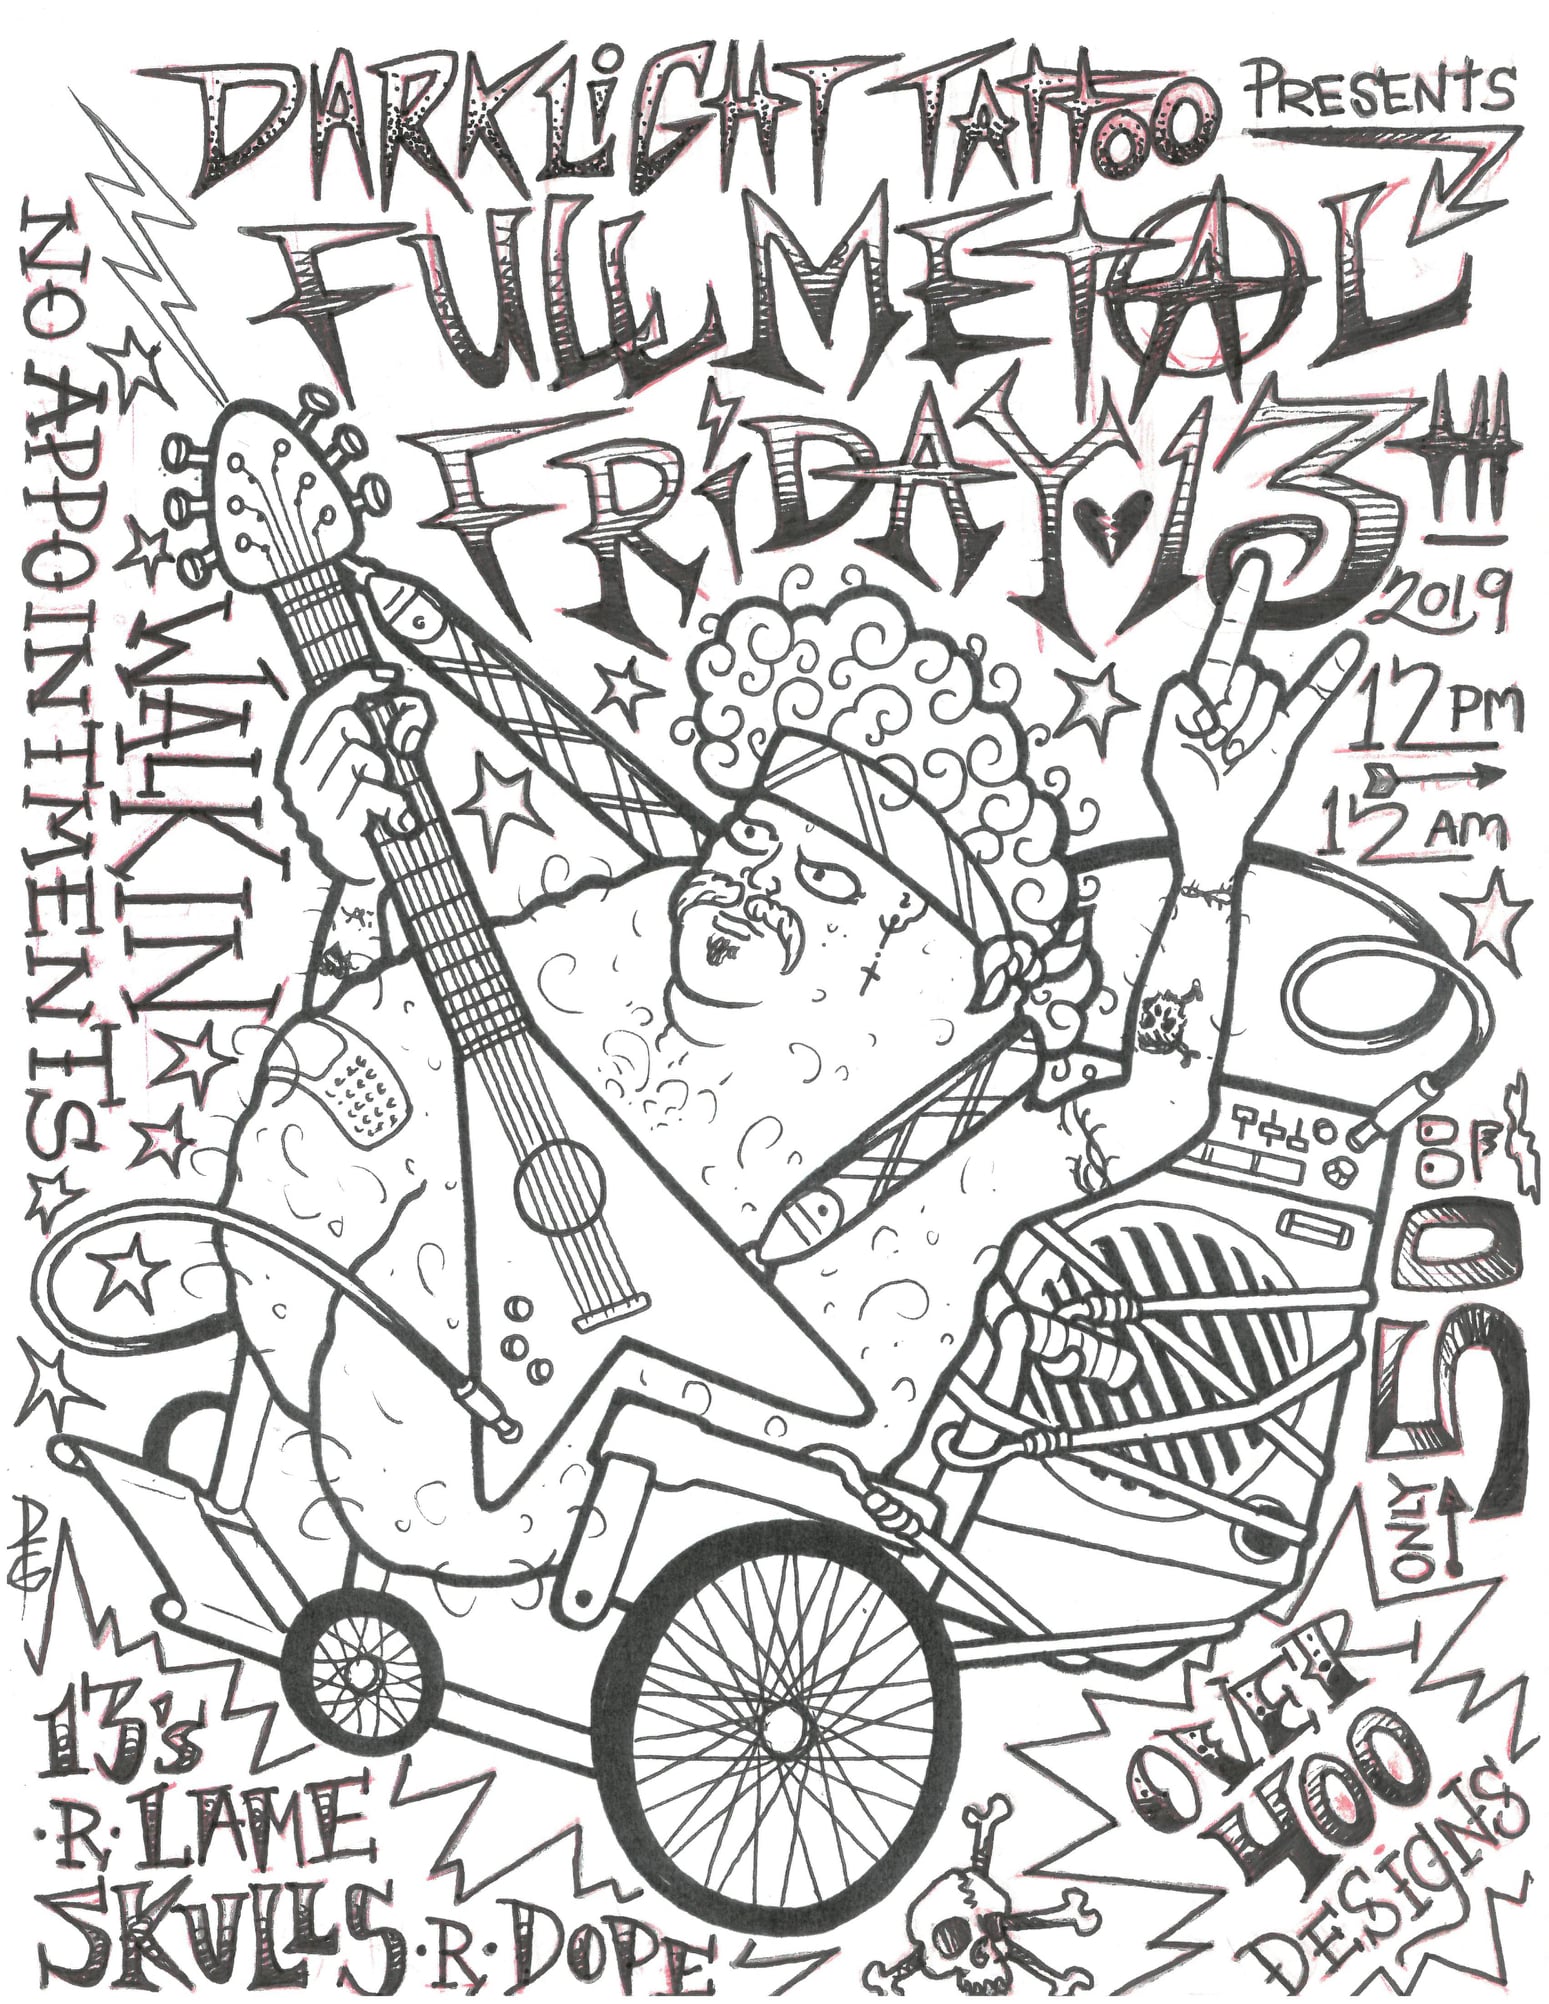 DARKLiGHT TATTOO PRESENTS
FULL METAL
FRiDAY 13TH
2019
12 PM
12 AM
NO APPOINTMENTS
WALK IN
50
ONLY
13's
·R· LAME
SKULLS ·R· DOPE
OVER
400
DESiGNS